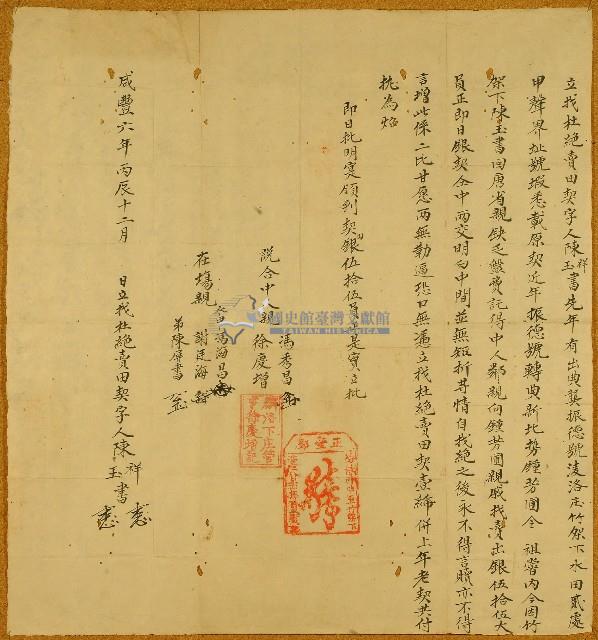 立找杜絕賣田契字人陳祥玉書先年有出典龔振德號淩洛庄竹架下水田貳處
甲聲界址號載悉載原契近年振德號轉典新北勢鍾芳圃今祖嘗內今因竹
架下陳玉書回唐省親缺乏盤費託得中人鄰親向鍾芳圃親戚找賣出銀伍拾伍大
員正即日銀契仝中兩交明白中間並無短折等情自找絕之後永不得言贖亦不得
言增此係二比甘愿兩無勒逼恐口無憑立找杜絕賣田契壹紙併上年老契共付
執為炤
即日批明寔領到契銀伍拾伍員是實立批
說合中親馮秀昌
徐慶增
在塲親
馮海昌
謝廷海
弟陳雁書
咸豐六年丙辰十二月 日立找杜絕賣田契字人陳祥玉書
國史館臺灣文獻館
TAIWAN HISTORICA